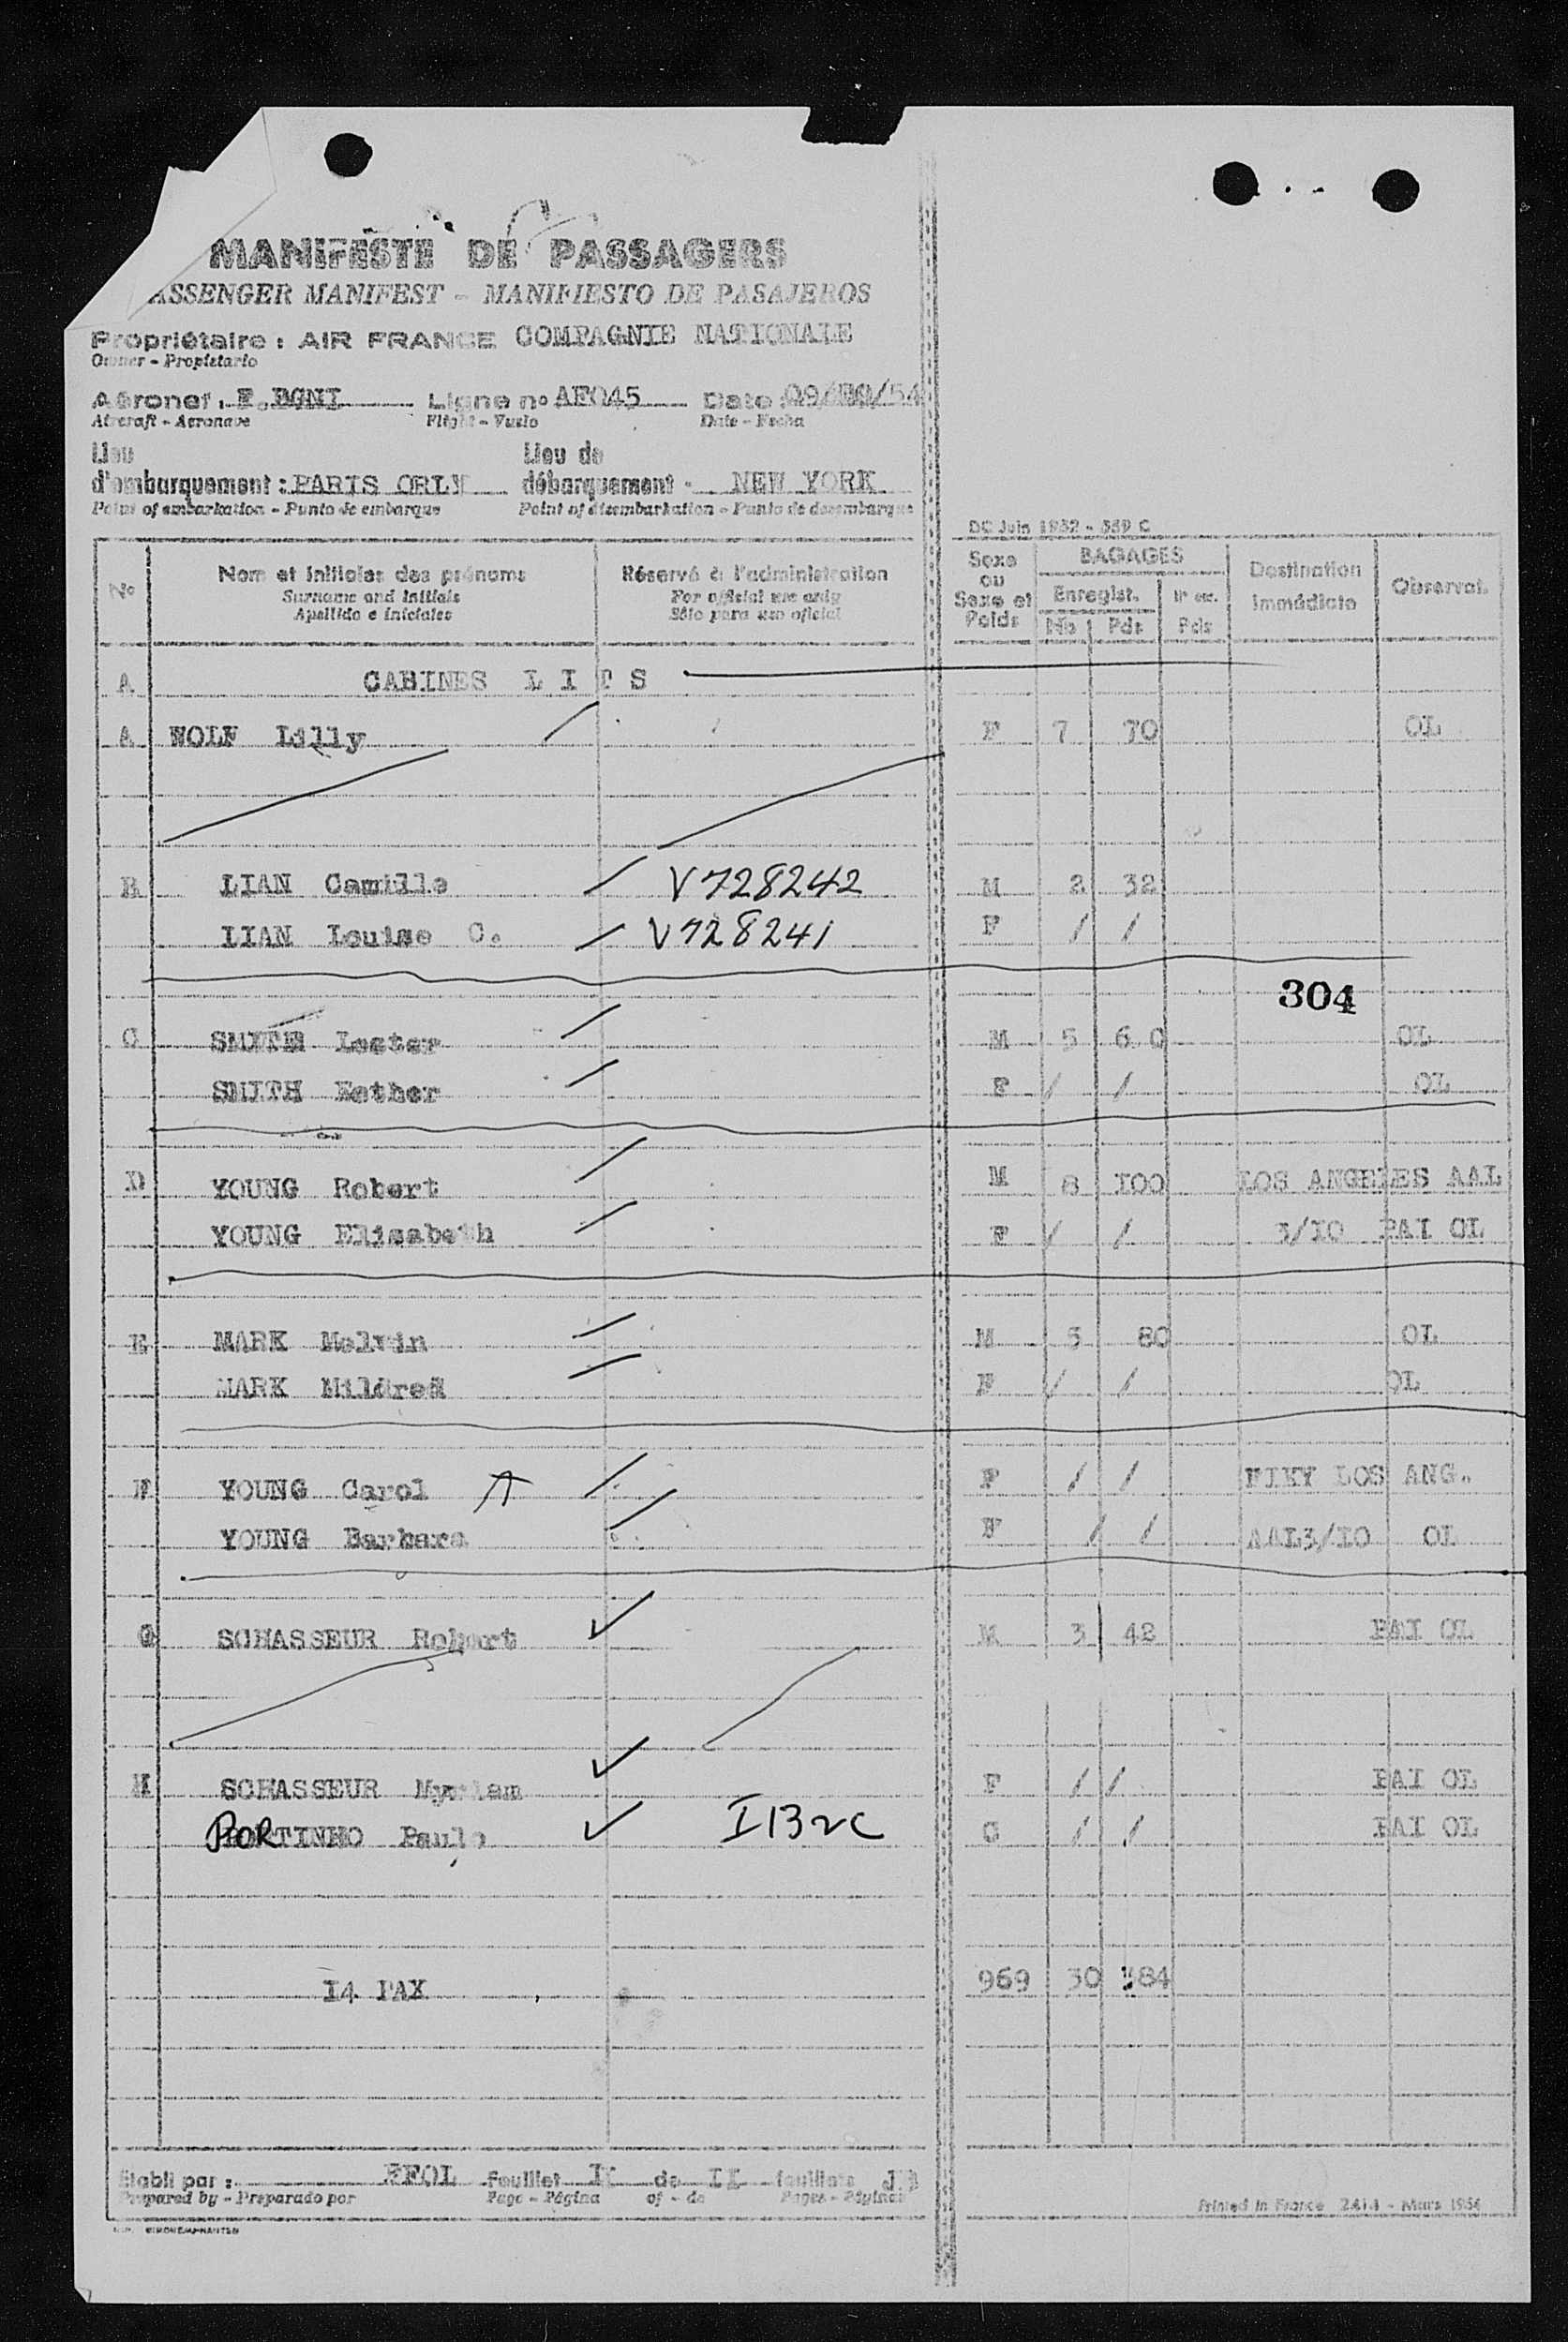 MANIFESTE DE PASSAGERS
ASSENGER MANIFEST - MANIFIESTO DE PASAJEROS
Propriétaire : AIR FRANCE COMPAGNIE NATIONALE
Owner - Propietario
Aéronef : F.BGNI Ligne no AF045 Date :
Aircraft - Aeronave Flight - Vuelo Date - Fecha
Lieu d'embarquement : PARIS ORLY Lieu de débarquement - NEW YORK
Point of embarkation - Punto de embarque Point of disembarkation - Punto de desembarque
DC Juin 1952 - 559 C
No Nom et initiales des prénoms Réservé à l'administration Sexe ou Sexe et Poids BAGAGES Destination immédiate Observat.
Surname and initials For official use only Enregist.
Apellido e iniciales Sólo para uso oficial Nb Pds Pds
A CABINES L I T S
A WOLF Lilly F 7 70 OL
B LIAN Camille V728242 M 2 32
LIAN Louise C. V728241 F / /
304
C SMITH Lester M 5 60 OL
SMITH Esther F / / OL
D YOUNG Robert M 8 I00 LOS ANGELES AAL
YOUNG Elisabeth F / / 3/I0 PAI OL
E MARK Melvin M 5 80 OL
MARK Mildred F / / OL
F YOUNG Carol F / / FIKY LOS ANG.
YOUNG Barbara F / / AAL3/I0 OL
G SCHASSEUR Robert M 3 42 PAI OL
H SCHASSEUR Myriam F / / PAI OL
PORTINHO Paulo I132C C / / PAI OL
I4 PAX 969 30 384
Etabli par : FFOL feuillet II de II feuillets
Prepared by - Preparado por Page - Página of - de Pages - Páginas
Printed in France 2414 - Mars 1954